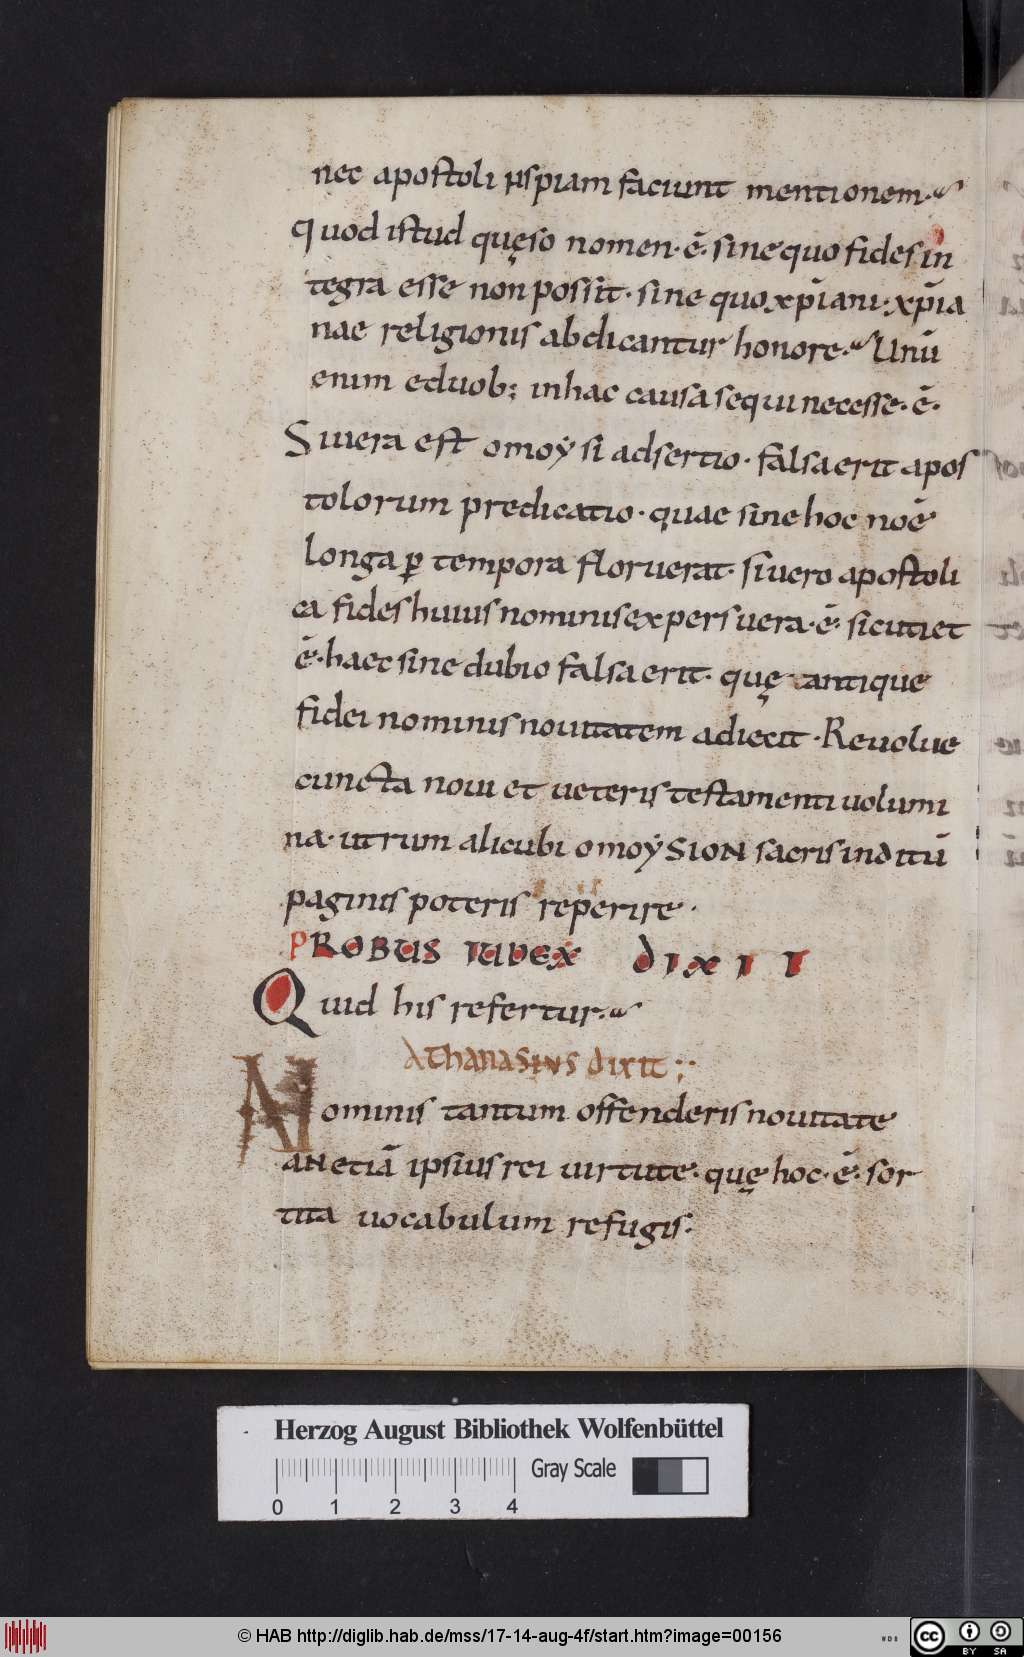 nec apostoli uspiam faciunt mentionem.
Quod istud quęso nomen· ē· sine quo fides in
tegra esse non possit· sine quo xp̄iani· xp̄ia
nae religionis abdicantur honore. Unū
enim eduob; in hac causa sequi necesse· ē·
Si uera est omoÿsi adsertio· falsa erit apos
tolorum predicatio· quae sine hoc noē
longa ꝑ tempora floruerat· si uero apostoli
ca fides huius nominis expers uera· ē· sicuti et
ē· haec sine dubio falsa erit· quę tantique
fidei nominis nouitatem adiecit· Reuolue
cuncta noui et ueteris testamenti uolumi
na· utrum alicubi omoÿSION sacris inditū
paginis poteris reperire·
PROBUS IUDEX dIXIT
Quid his refertur.
AThanasius dixit
Nominis tantum offenderis nouitate
an etiā ipsius rei uirtute· quę hoc· ē· sor
tita uocabulum refugis:
Herzog August Bibliothek Wolfenbüttel
0 1 2 3 4 Gray Scale
© HAB http://diglib.hab.de/mss/17-14-aug-4f/start.htm?image=00156
WDB
cc BY SA